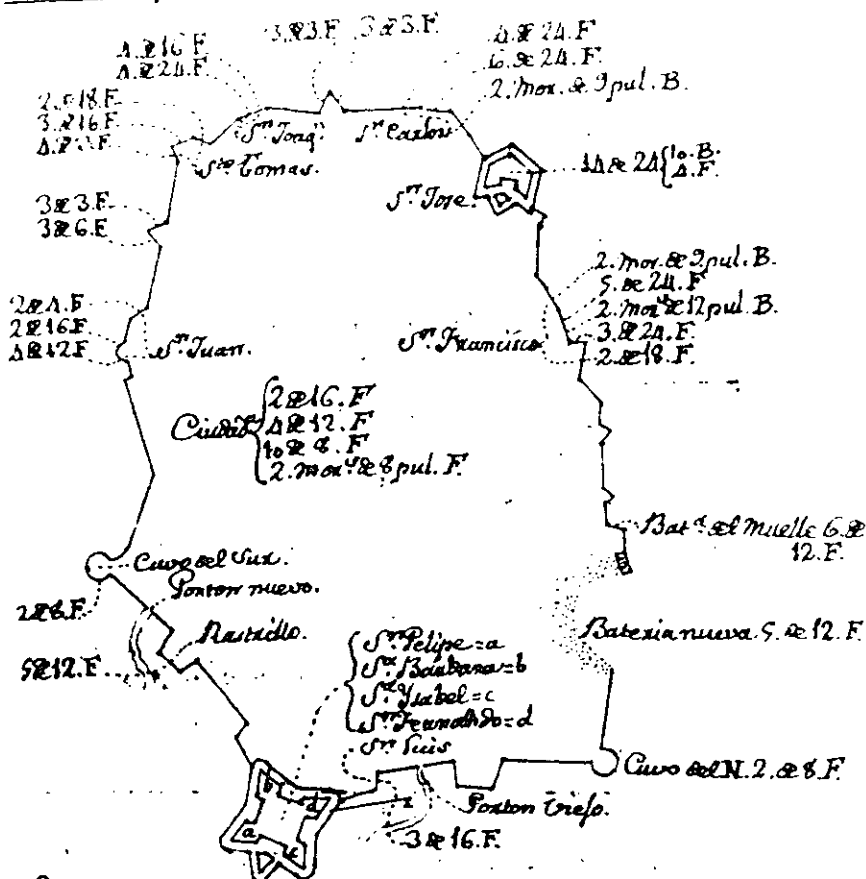 3 de 3. F.
3 de 3. F.
4. de 16 F.
4. de 24. F.
4. de 24. F
6. de 24. F.
2. Mor. de 9 pul. B.
2. de 18. F.
3. de 16. F.
Sn. Joaqn.
Sn. Carlos
Sto. Tomas.
14 de 24 { 10. B.
4. F.
Sn. Jose.
3 de 3. F.
3 de 6. F
2. Mor. de 9. pul. B.
5. de 24. F
2. Mors. de 12 pul. B.
3. de 24. F.
2. de 18. F.
2 de 4. F
2 de 16. F.
4 de 12. F.
Sn. Juan.
Sn. Francisco
Ciudad { 2 de 16. F
4 de 12. F.
10 de 8. F
2. Mors. de 8 pul. F.
Bata. del Muelle 6. de
12. F.
Cuvo del Sur.
Porton nuevo.
2 de 8. F
Rastrillo.
Bateria nueva. 5. de 12. F.
5 de 12. F.
Sn. Felipe = a
Sa. Bárbara = b
Sa. Ysabel = c
Sn. Fernando = d
Sn. Luis
Cuvo del N. 2. de 8. F.
Porton viejo.
3 de 16. F.
b
d
a
c